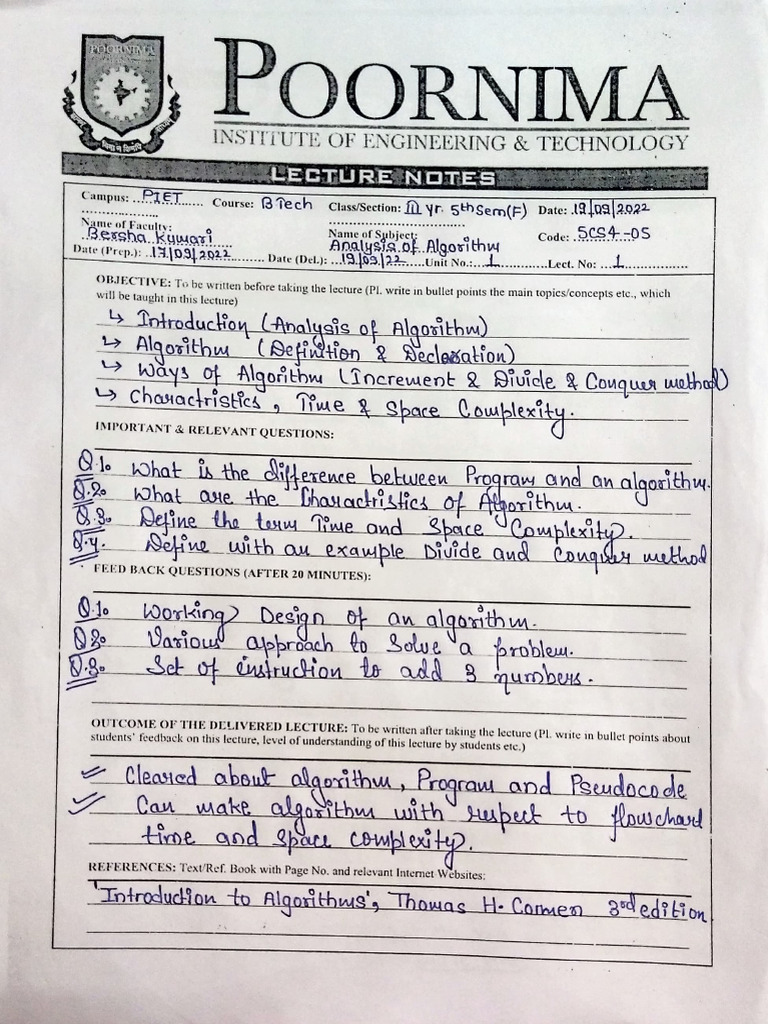 POORNIMA
POORNIMA
INSTITUTE OF ENGINEERING & TECHNOLOGY
LECTURE NOTES
Campus: PIET Course: B Tech Class/Section: III yr. 5th Sem(F) Date: 19/09/2022
Name of Faculty: Name of Subject: Code: 5CS4-05
Bersha Kumari Analysis of Algorithm
Date (Prep.): 17/09/2022 Date (Del.): 19/09/22 Unit No.: 1 Lect. No: 1
OBJECTIVE: To be written before taking the lecture (Pl. write in bullet points the main topics/concepts etc., which
will be taught in this lecture)
↳ Introduction (Analysis of Algorithm)
↳ Algorithm (Definition & Decleration)
↳ Ways of Algorithm (Increment & Divide & Conquer method)
↳ Charactristics, Time & Space Complexity.
IMPORTANT & RELEVANT QUESTIONS:
Q.1. What is the difference between Program and an algorithm.
Q.2. What are the Charactristics of Algorithm.
Q.3. Define the term Time and Space Complexity.
Q.4. Define with an example Divide and Conquer method
FEED BACK QUESTIONS (AFTER 20 MINUTES):
Q.1. Working) Design of an algorithm.
Q.2. Various approach to solve a problem.
Q.3. Set of instruction to add 3 numbers.
OUTCOME OF THE DELIVERED LECTURE: To be written after taking the lecture (Pl. write in bullet points about
students' feedback on this lecture, level of understanding of this lecture by students etc.)
Cleared about algorithm, Program and Pseudocode
Can make algorithm with respect to flowchard
time and space complexity.
REFERENCES: Text/Ref. Book with Page No. and relevant Internet Websites:
'Introduction to Algorithms', Thomas H. Cormen 3rd edition